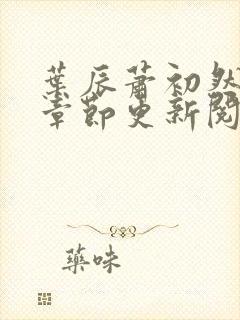 葉辰蕭初然
章節更新閱
藥味